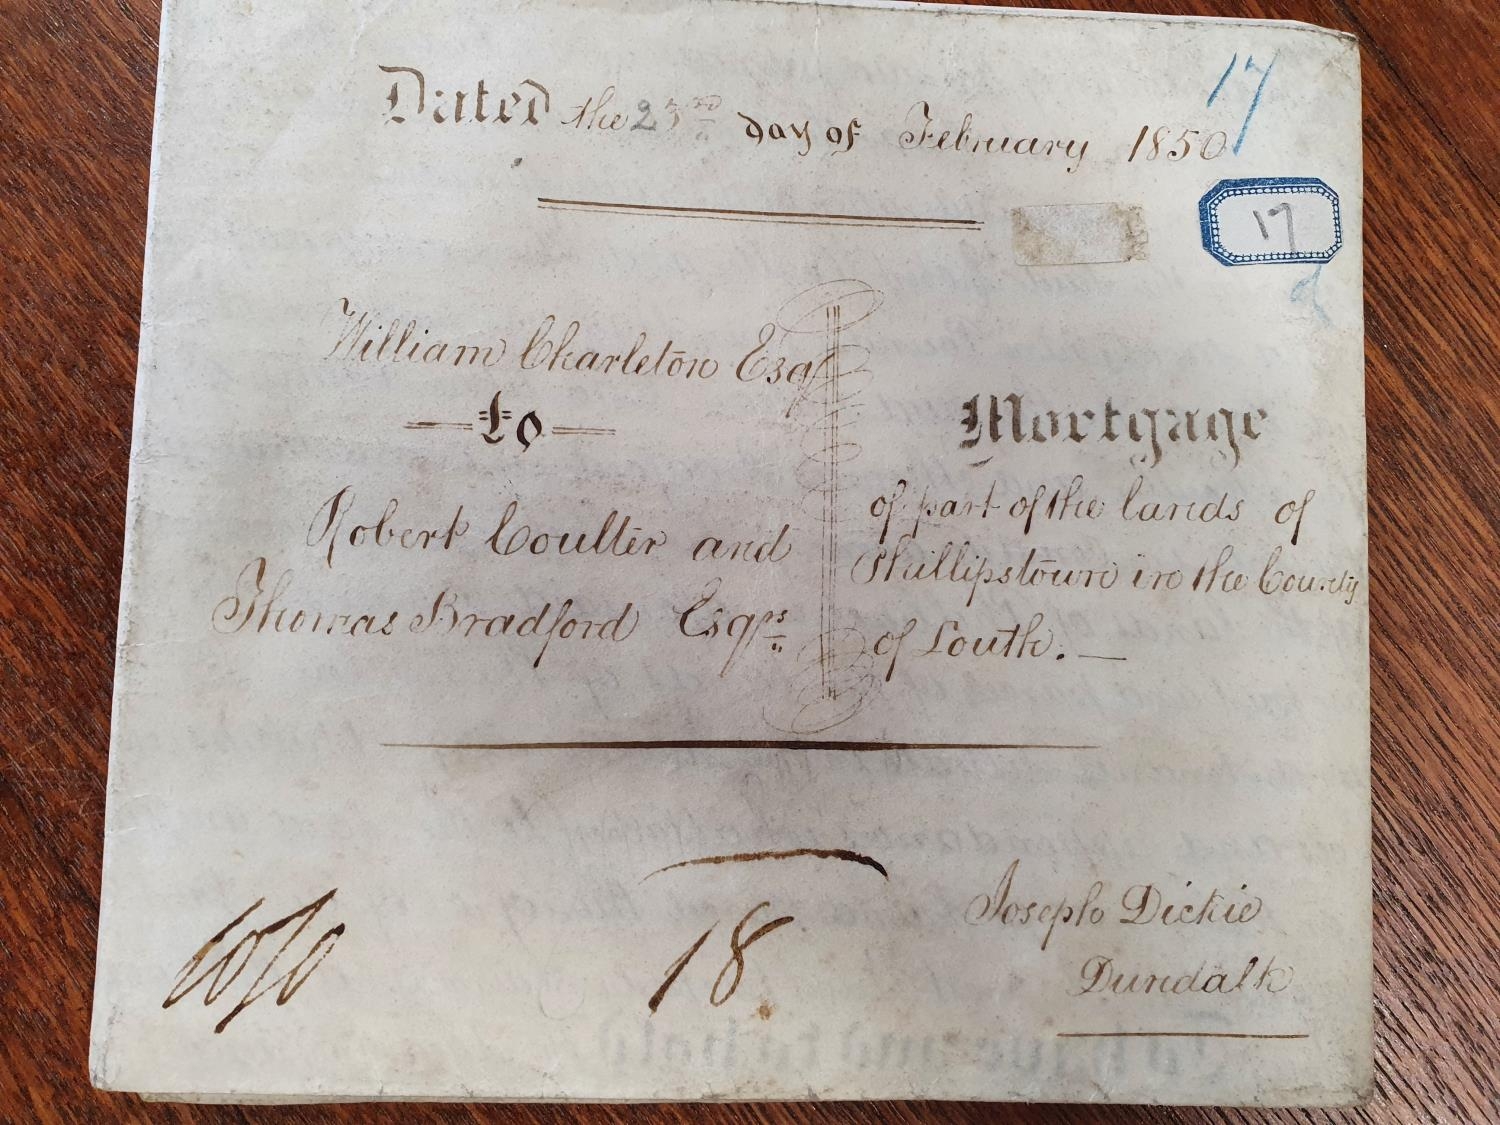 17
Dated the 23rd day of February 1850
17
d
William Charleton Esqr
to
Robert Coulter and
Thomas Bradford Esqrs
Mortgage
of part of the lands of
Phillipstown in the County
of Louth.
18
Joseph Dickie
Dundalk
To have and to hold